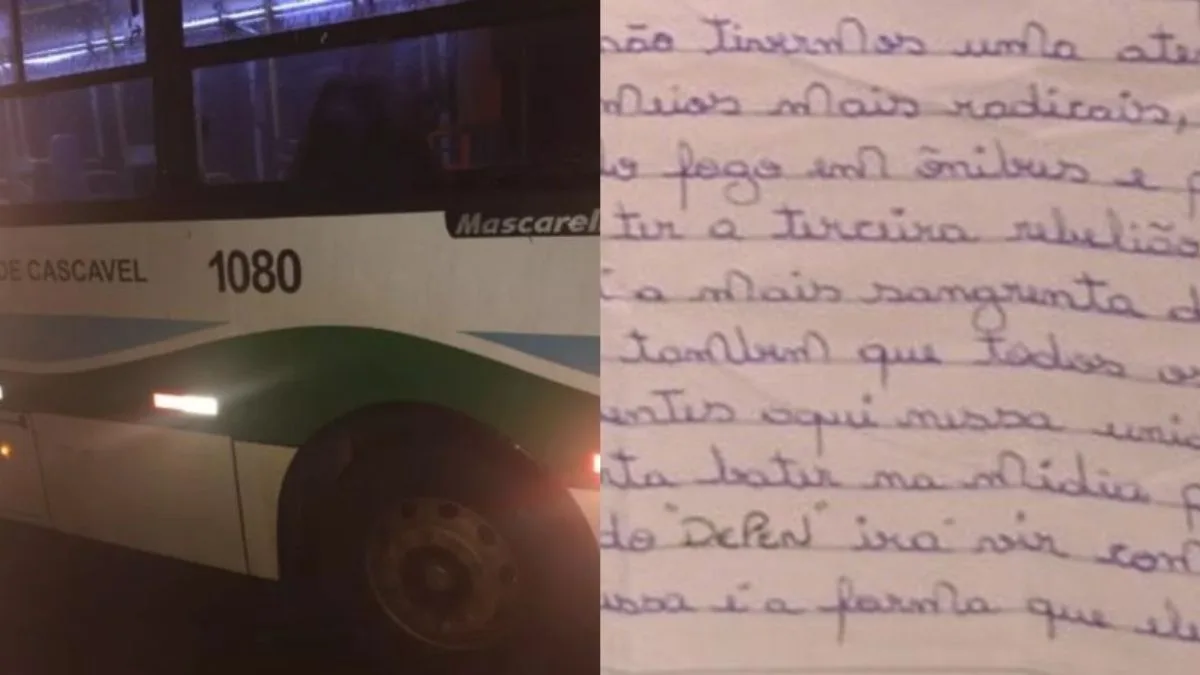 Mascarel
DE CASCAVEL 1080
não tivermos uma ate
meios mais radicais,
do fogo em ônibus e p
ter a terceira rebelião
a mais sangrenta d
também que todos os
entes aqui nessa unid
nta bater na mídia p
do "DEPEN" irá vir com
essa é a forma que ele